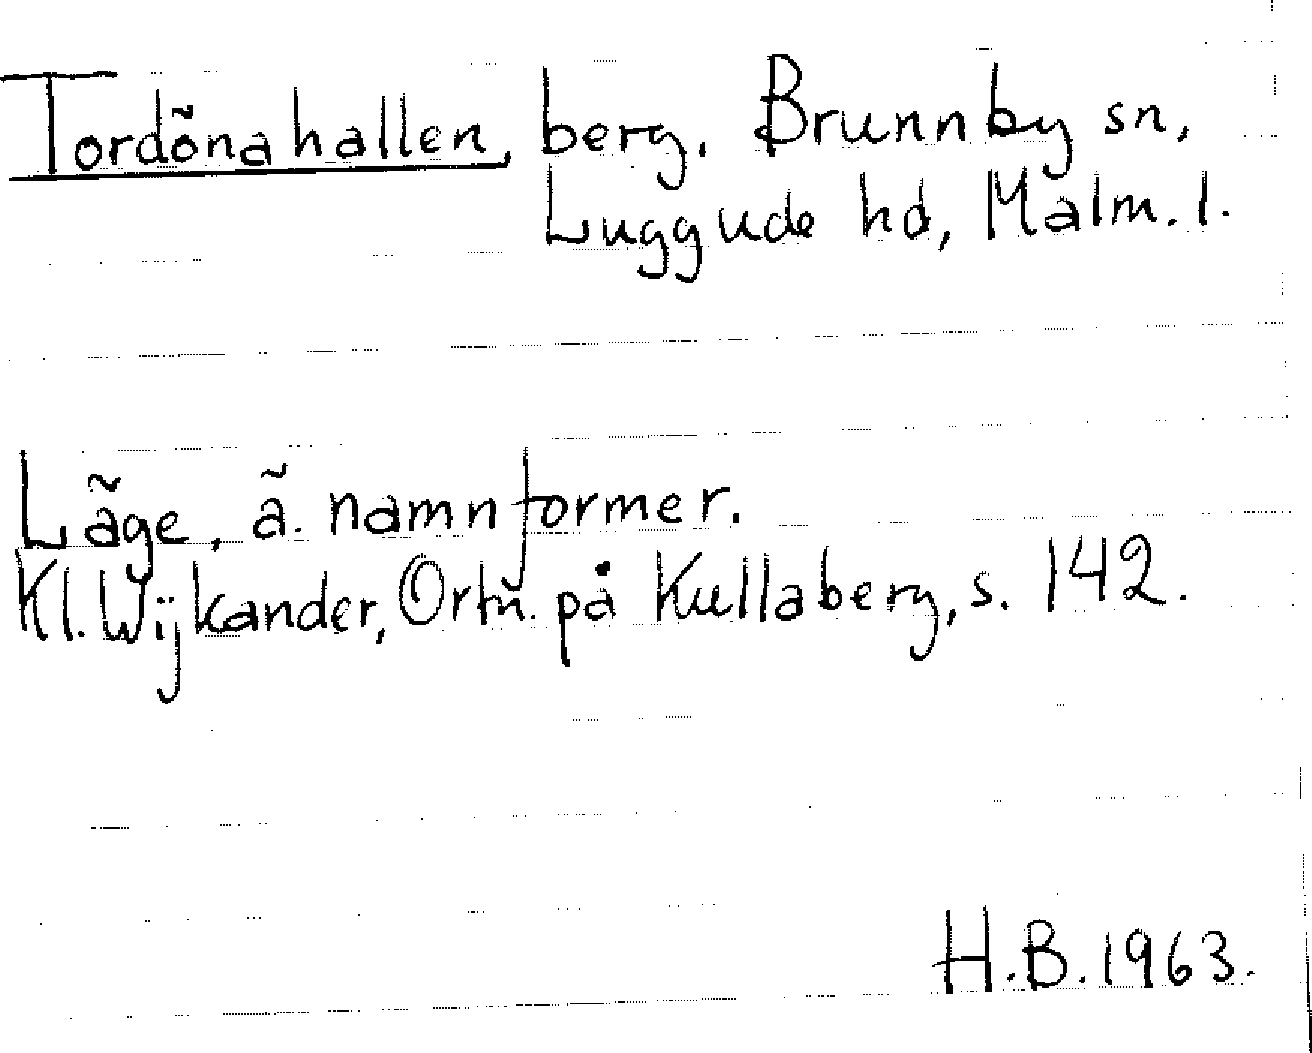 Tordönahallen, berg. Brunnby sn,
Luggude hd, Malm. l.
Läge, ä. namnformer.
Kl. Wijkander, Ortn. på Kullaberg, s. 142.
H.B. 1963.